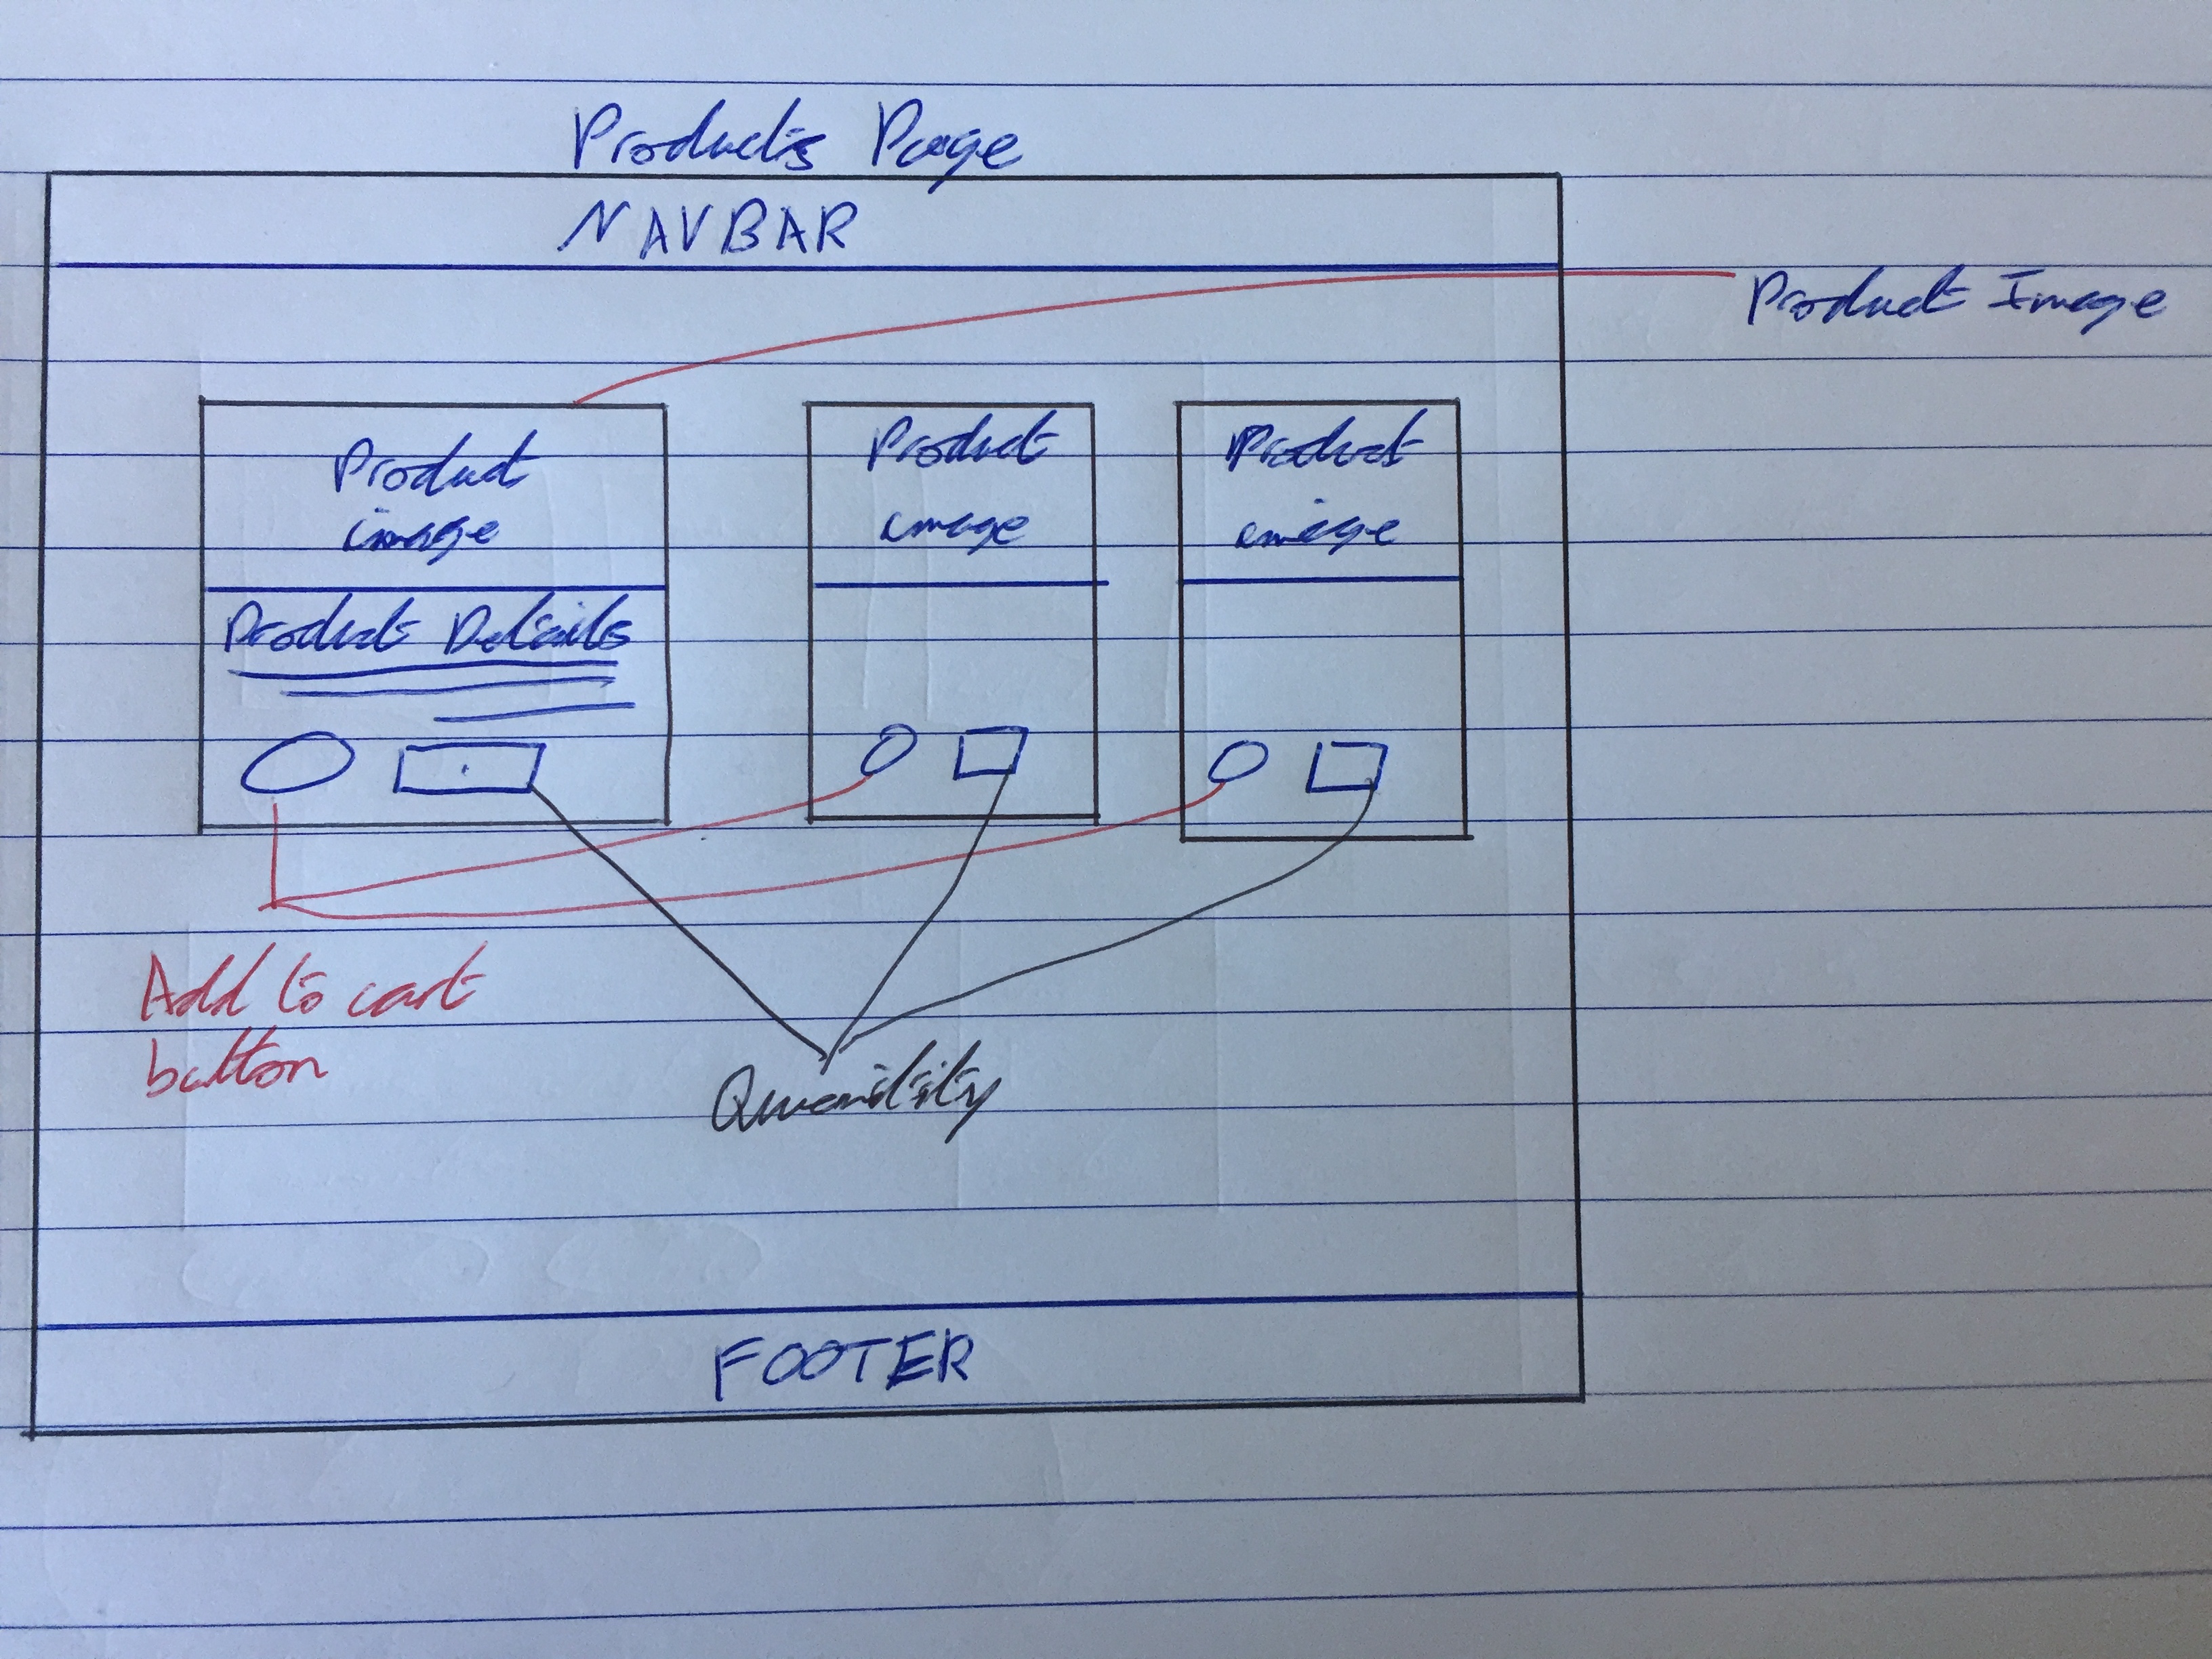 Products Page
NAVBAR
Product Image
Product
image
Product
image
Product
image
Product Details
Add to cart
button
Quantity
FOOTER